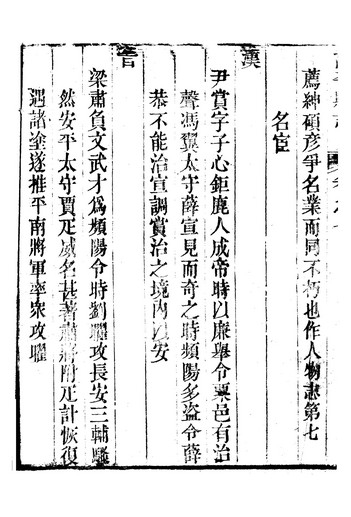 薦紳碩彥爭名業而同不朽也作人物志第七
名宦
漢
尹賞字子心鉅鹿人成帝時以廉舉令粟邑有治
聲馮翼太守薛宣見而奇之時頻陽多盜令薛
恭不能治宣調賞治之境內以安
晉
梁肅負文武才爲頻陽令時劉曜攻長安三輔騷
然安平太守賈疋威名甚著肅將附疋計恢復
遇諸塗遂推平南將軍率衆攻曜